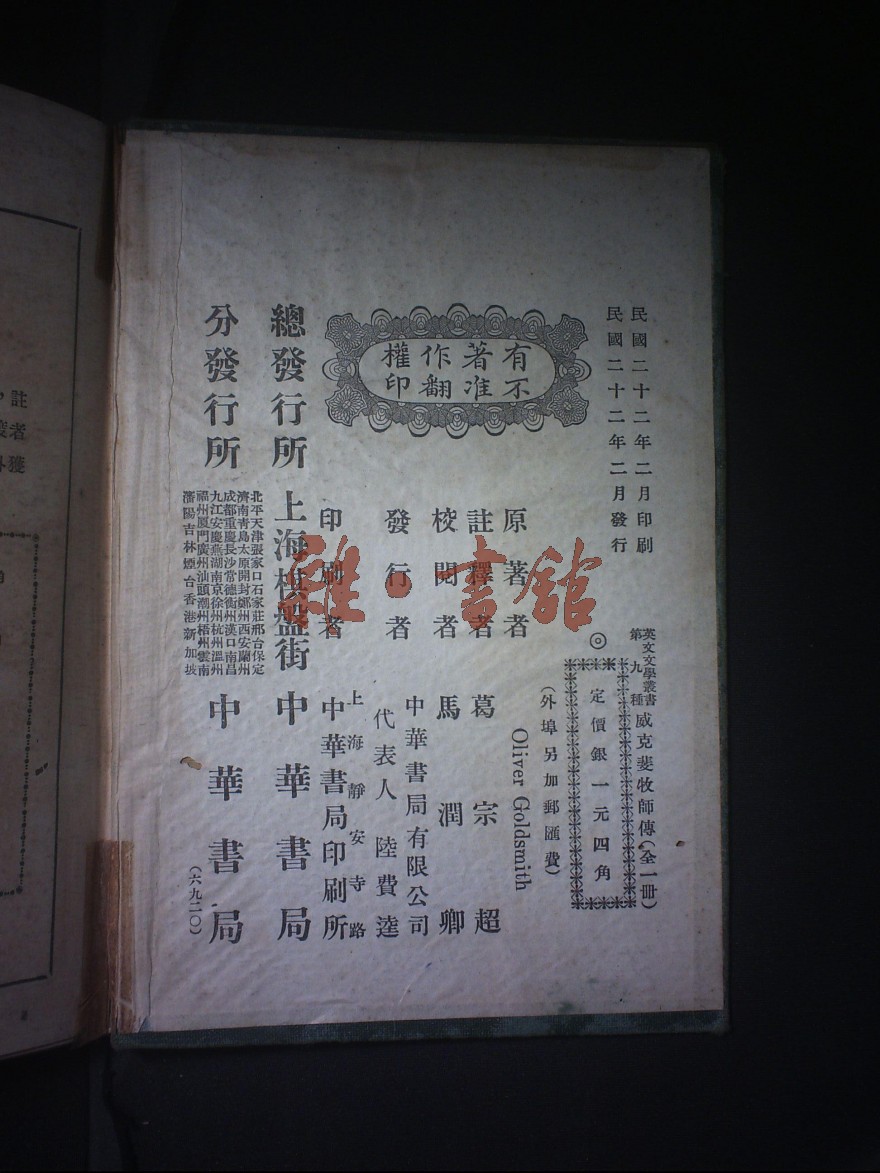 民國二十二年二月印刷
民國二十二年二月發行
英文文學叢書
第九種
威克斐牧師傳(全一冊)
◎
定價銀一元四角
(外埠另加郵匯費)
有著作權
不准翻印
原著者 Oliver Goldsmith
註釋者 葛宗超
校閱者 馬潤卿
發行者
中華書局有限公司
代表人 陸費逵
印刷者
上海靜安寺路
中華書局印刷所
總發行所 上海棋盤街 中華書局
分發行所
北平天津張家口石家莊邢台保定
濟南青島太原開封鄭州西安蘭州
成都重慶長沙常德衡州漢口南昌
九江安慶蕪湖南京徐州杭州溫州
福州厦門廣州汕頭潮州梧州雲南
瀋陽吉林煙台香港新加坡
中華書局
(六九二〇)
雜·書館
註
者
獲